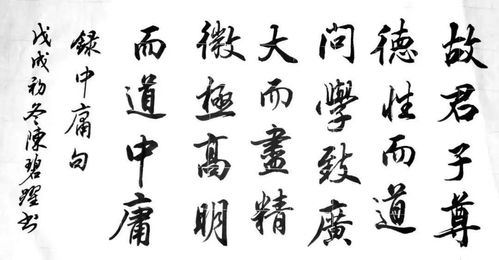 故君子尊
德性而道
問學致廣
大而盡精
微極高明
而道中庸
録中庸句
戊戌初冬陳碧躍书